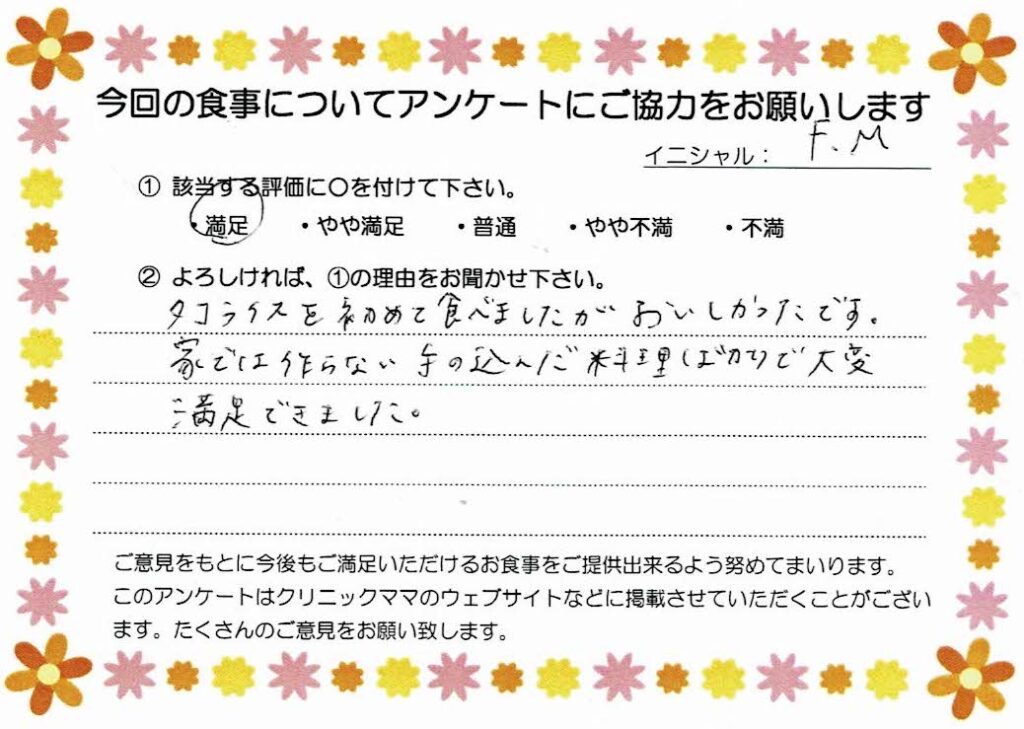 今回の食事についてアンケートにご協力をお願いします
イニシャル： F.M
① 該当する評価に〇を付けて下さい。
・満足 ・やや満足 ・普通 ・やや不満 ・不満
② よろしければ、①の理由をお聞かせ下さい。
タコライスを初めて食べましたが おいしかったです。
家では作らない手の込んだ料理ばかりで大変
満足できました。
ご意見をもとに今後もご満足いただけるお食事をご提供出来るよう努めてまいります。
このアンケートはクリニックママのウェブサイトなどに掲載させていただくことがござい
ます。たくさんのご意見をお願い致します。